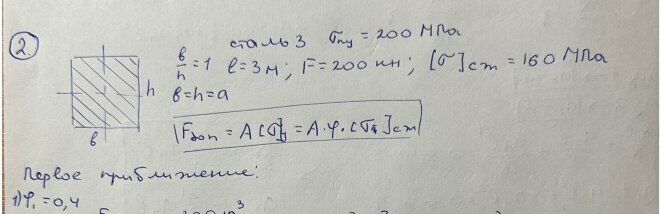 2. сталь 3 σпц = 200 МПа
в/h = 1 l = 3 м; F = 200 кн; [σ]ст = 160 МПа
h в = h = a
в Fдоп = A[σ]у = A·φ·[σ]ст
Первое приближение:
1) φ₁ = 0,4